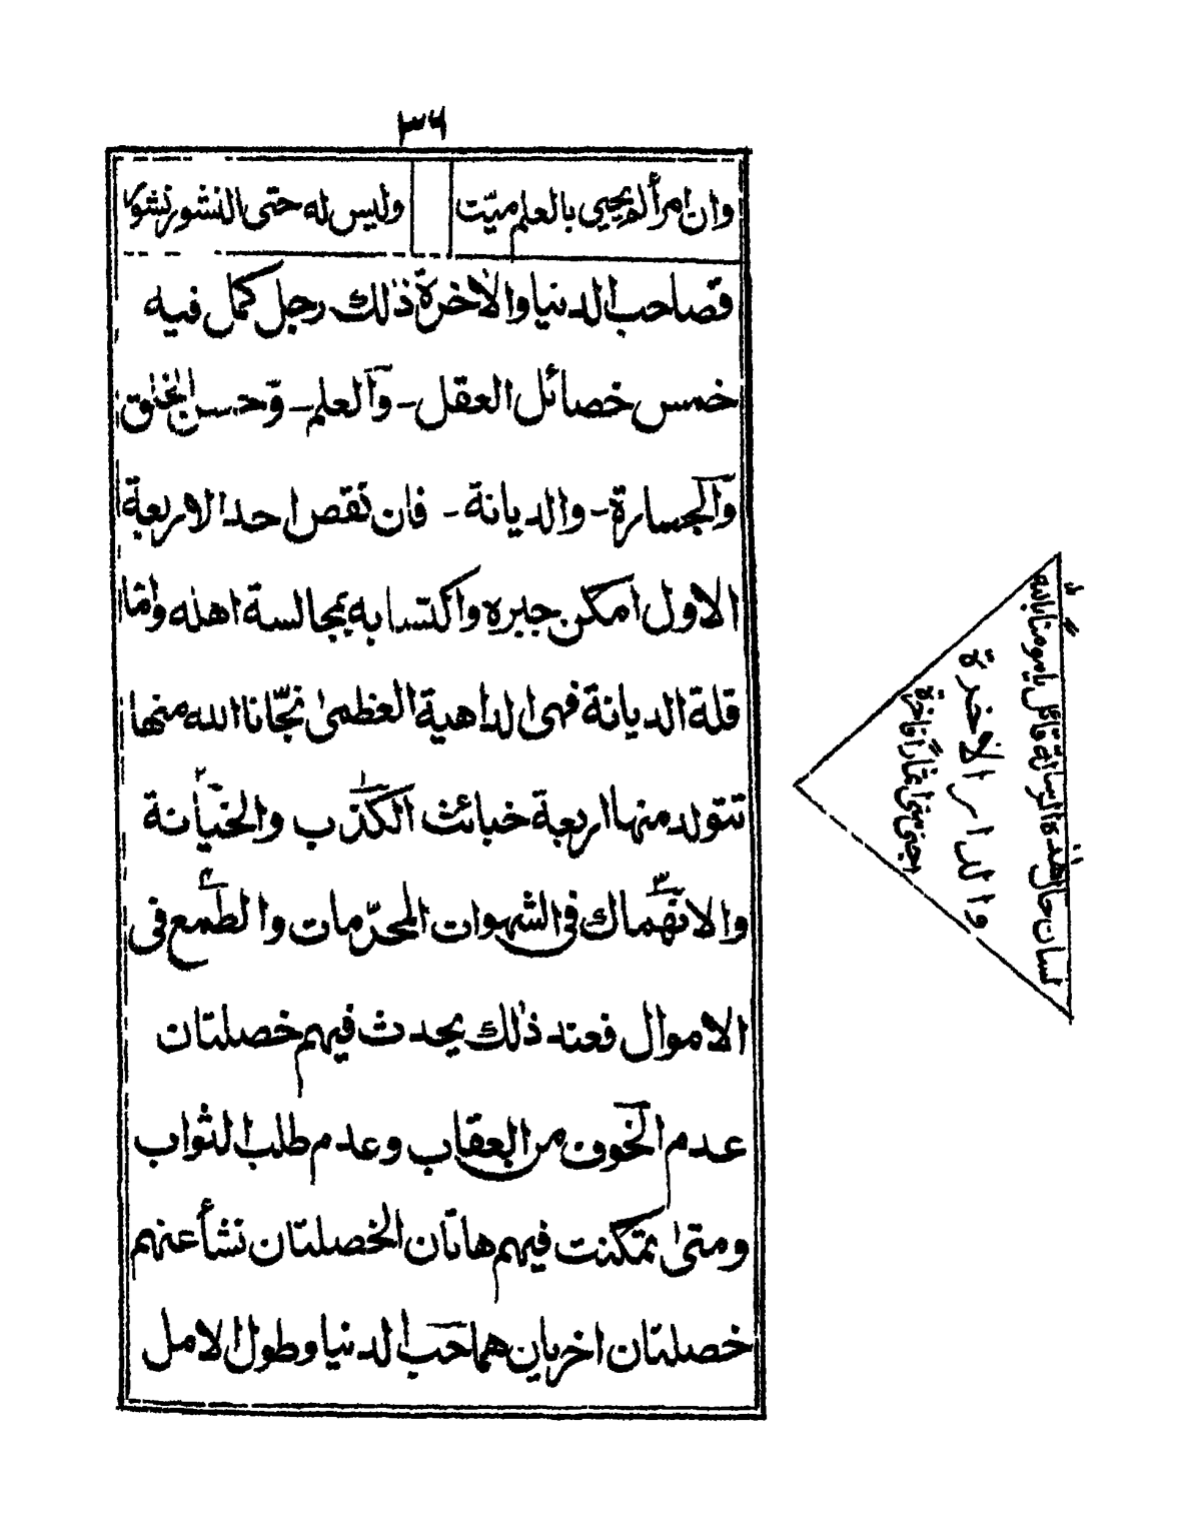 ٣٦
وان امرأ لم يحيي بالعلم ميّت وليس له حتى النشور نشور
فصاحب الدنيا والاخرة ذلك رجل كمل فيه
خمس خصائل العقل - والعلم - وحسن الخلق
والجسارة - والديانة - فان نقص احد الاربعة
الاول امكن جبره واكتسابه بمجالسة اهله وامّا
قلة الديانة فهى الداهية العظمى نجّانا الله منها
تتولد منها اربعة خبائث الكذب والخيانة
والانهماك فى الشهوات المحرّمات والطمع فى
الاموال فعند ذلك يحدث فيهم خصلتان
عدم الخوف من العقاب وعدم طلب الثواب
ومتى تمكنت فيهم هاتان الخصلتان نشأ عنهم
خصلتان اخريان هما حب الدنيا وطول الامل
لسان حال هذه الرسالة قائل يا مومنا بالله
والدار الاخرة
اجن منى اثمارًا فاخرة